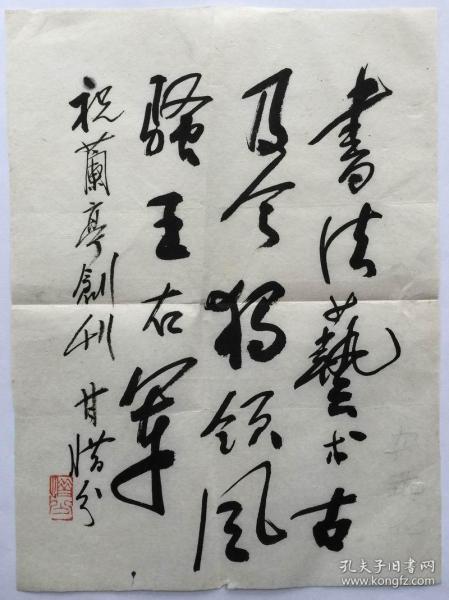 書法藝术古
及今獨領風
騷王右軍
祝蘭亭創刊 甘惜分
惜分
孔夫子旧书网
www.kongfz.com